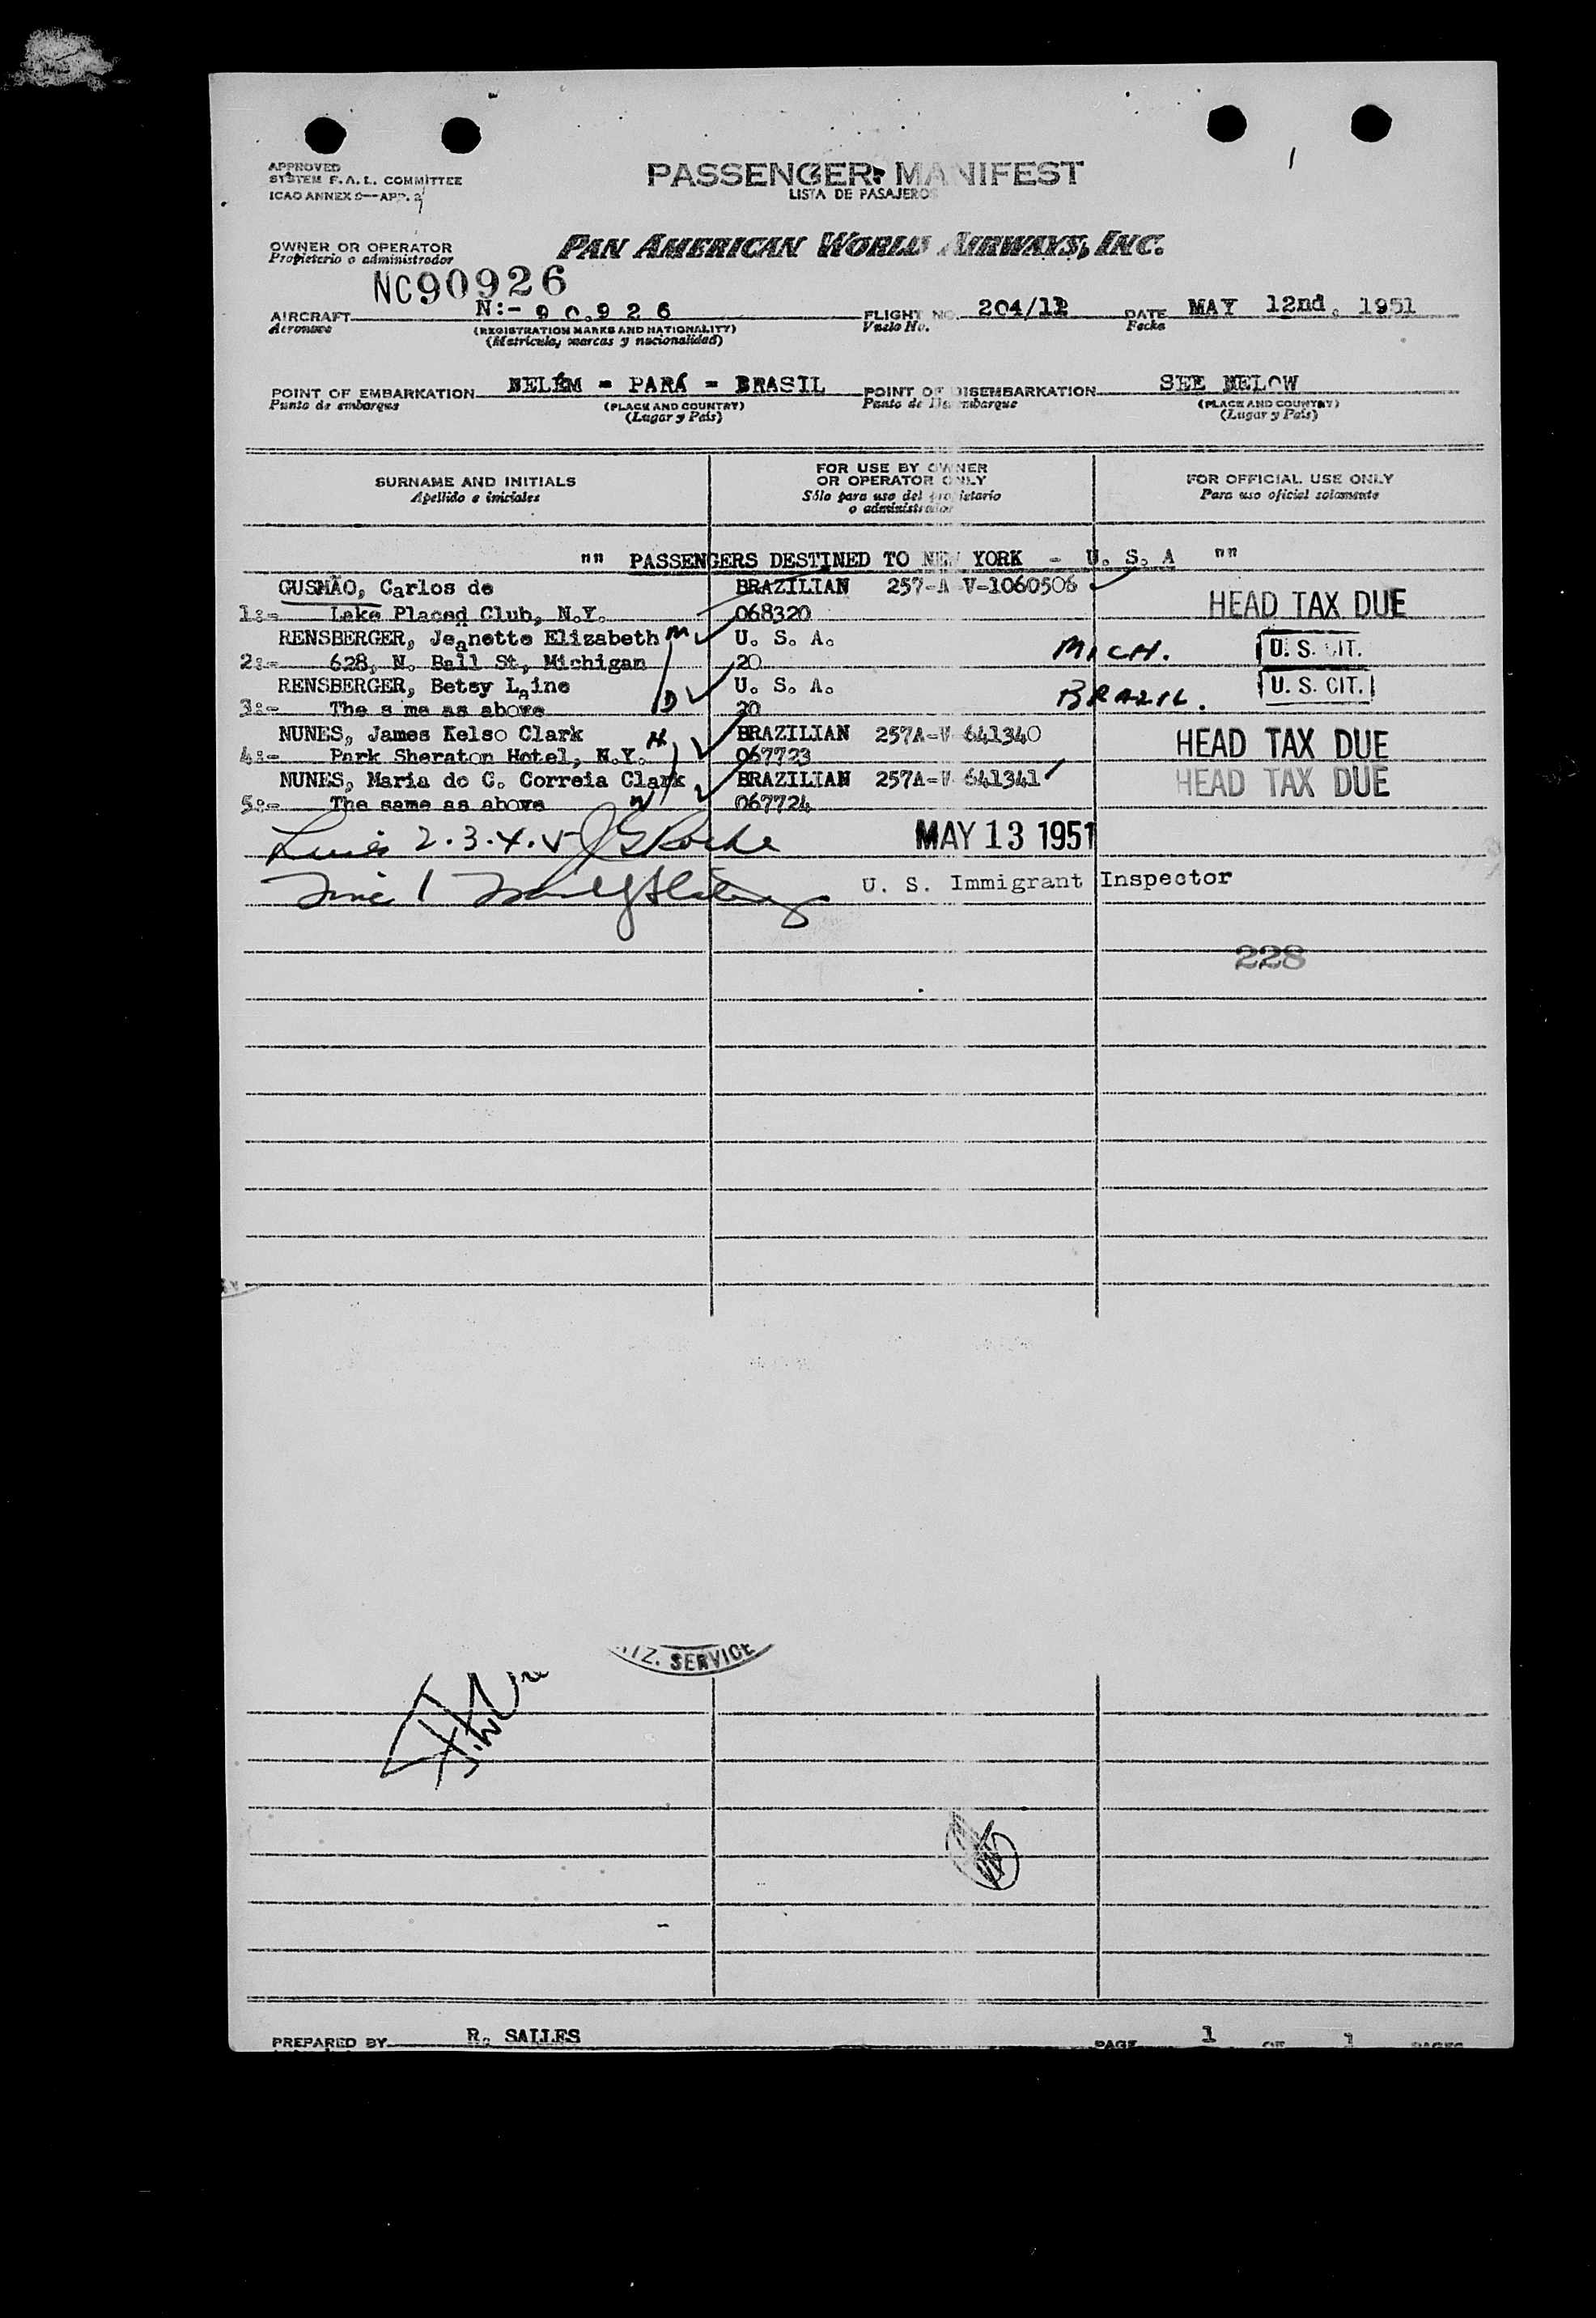 1
APPROVED
SYSTEM F.A.L. COMMITTEE
ICAO ANNEX 9—APP. 2
PASSENGER MANIFEST
LISTA DE PASAJEROS
OWNER OR OPERATOR
Propietario o administrador
PAN AMERICAN WORLD AIRWAYS, INC.
NC90926
AIRCRAFT N:- 90926 FLIGHT NO. 204/12 DATE MAY 12nd, 1951
Aeronave (REGISTRATION MARKS AND NATIONALITY) Vuelo No. Fecha
(Matrícula, marcas y nacionalidad)
POINT OF EMBARKATION BELÉM = PARÁ = BRASIL POINT OF DISEMBARKATION SEE BELOW
Punto de embarque (PLACE AND COUNTRY) Punto de Desembarque (PLACE AND COUNTRY)
(Lugar y País) (Lugar y País)
SURNAME AND INITIALS FOR USE BY OWNER OR OPERATOR ONLY FOR OFFICIAL USE ONLY
Apellido e iniciales Sólo para uso del propietario o administrador Para uso oficial solamente
"" PASSENGERS DESTINED TO NEW YORK - U. S. A ""
GUSMÃO, Carlos de BRAZILIAN 257-A V-1060506
1:- Lake Placed Club, N.Y. 068320 HEAD TAX DUE
RENSBERGER, Jeanette Elizabeth M U. S. A.
2:- 628, N. Ball St, Michigan 20 MICH. U. S. CIT.
RENSBERGER, Betsy Laine U. S. A.
3:- The s me as above D 20 BRAZIL. U. S. CIT.
NUNES, James Kelso Clark H BRAZILIAN 257A-V 641340
4:- Park Sheraton Hotel, N.Y. 067723 HEAD TAX DUE
NUNES, Maria do C. Correia Clark BRAZILIAN 257A-V 641341 HEAD TAX DUE
5:- The same as above W 067724
Lines 2.3.4.5 MAY 13 1951
Line 1 U. S. Immigrant Inspector
228
IZ. SERVICE
PREPARED BY R. SALLES PAGE 1 OF 1 PAGES